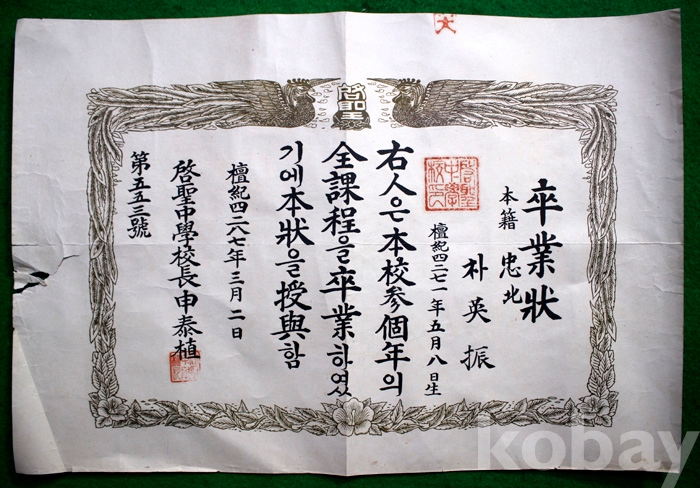 卒業狀
本籍 忠北
朴英振
檀紀四二七一年五月八日生
右人은本校参個年의
全課程을卒業하였
기에本狀을授與함
檀紀四二八七年三月二日
啓聖中學校長申泰植
第五五三號
kobay